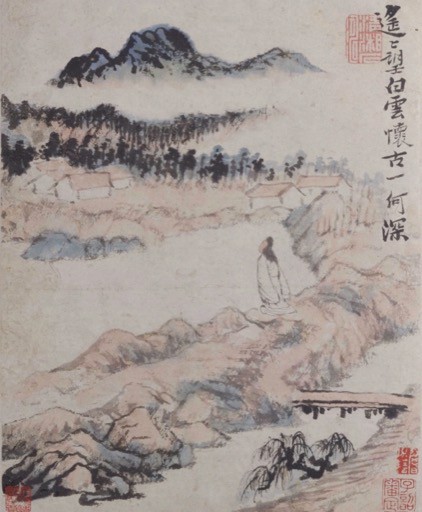 遙〻望白雲懷古一何深